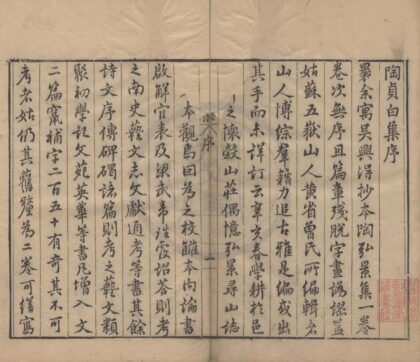 陶貞白集序
曩余寓吳興得抄本陶弘景集一卷
卷次無序且篇章殘脫字畫譌謬蓋
姑蘇五嶽山人黃省曾氏所編輯者
山人博綜羣籍力追古雅是編或出
其手而未詳訂云辛亥春學耕於邑
之懷穀山莊偶憶弘景尋山志
序
本觀焉因為之校讎本向論書
啟解官表及梁武帝往復詔答則考
之南史藝文志文獻通考等書其餘
詩文序傳碑碣諸篇則考之藝文類
聚初學記文苑英華等書凡增入文
二篇竄補字二百五十有奇其不可
考者姑仍其舊釐為二卷可繕寫